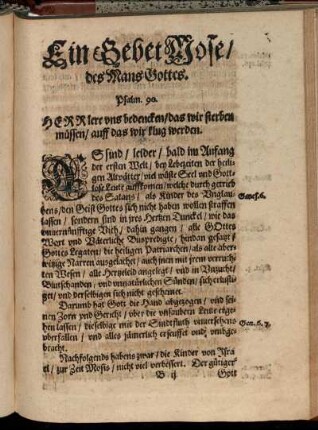 Ein Gebet Mose/
des Mans Gottes.
Psalm. 90.
HERR lere vns bedencken/das wir sterben
müssen/auff das wir klug werden.
ES sind/leider/bald im Anfang
der ersten Welt/bey Lebzeiten der heili-
gen Altväter/viel wüste Seel vnd Gott-
lose Leute auffkomen/welche durch getrieb
des Satans/als Kinder des Vnglau-
bens/den Geist Gottes sich nicht haben wöllen straffen
lassen/sondern sind in jres Hertzen Dunckel/wie das
vnuernünfftige Vieh/dahin gangen/alle GOttes
Wort vnd Veterliche Busspredigt/hindan gesatzt/
Gottes Legaten/die heiligen Patriarchen/als alte aber-
witzige Narren ausgelachet/auch jnen mit jrem verruch-
ten Wesen/alle Hertzeleid angelegt/vnd in Vnzucht/
Blutschanden/vnd vnnatürlichen Sünden/sich erlusti-
get/vnd derselbigen sich nicht geschemet.
Darumb hat Gott die Hand abgezogen/vnd sei-
nen Zorn vnd Gericht/über die
gehen lassen/dieselbige mit der Sindfluth vnuersehens
überfallen/vnd alles jämerlich erseufft vnd vmbge-
bracht.
Nachfolgends habens zwar/die Kinder von Isra-
el/zur Zeit Mosis/nicht viel verbessert. Der gütiger
B ij
Gott
Genes.6.
Gen. 6. 7.